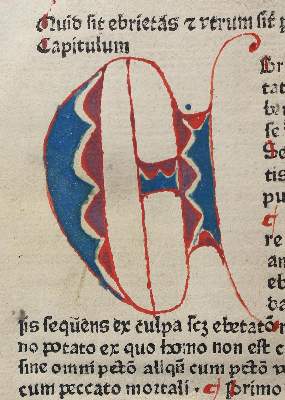 Quid sit ebrietas ⁊ vtrum sit p
Capitulum
E
br
tat
se
Sc
tis
pu
re
an
eb
ba
sis sequens ex culpa scz ebetatō
no potato ex quo homo non est c
sine omni pctō aliqn̄ cum pctō v
cum peccato mortali · ¶ Primo